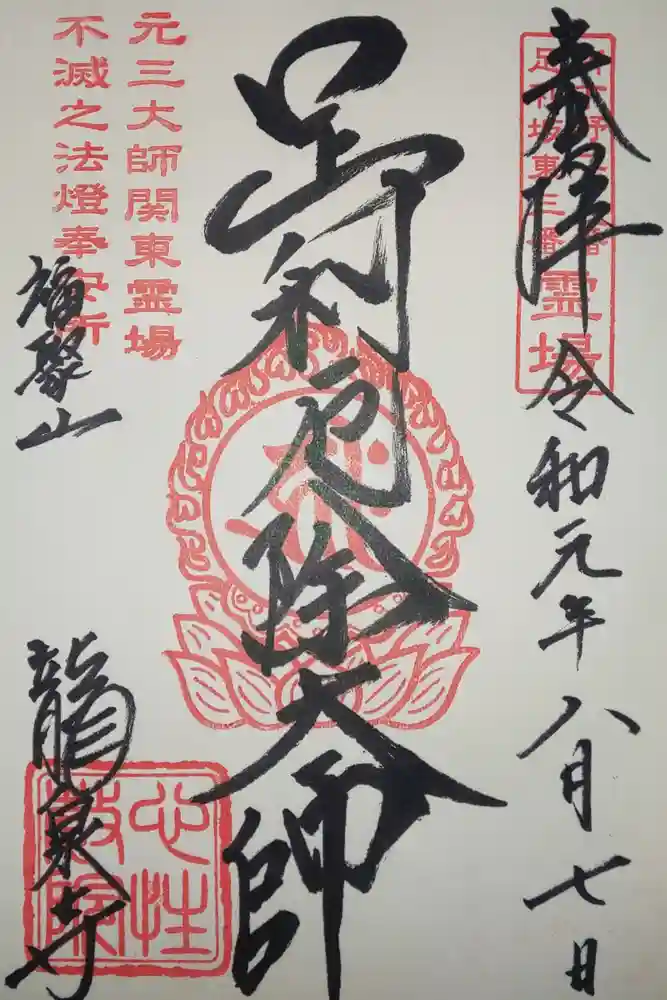 奉拝
令和元年八月七日
霊場
足利厄除大師
元三大師関東霊場
不滅之法燈奉安所
福聚山
龍泉寺
心性
教院